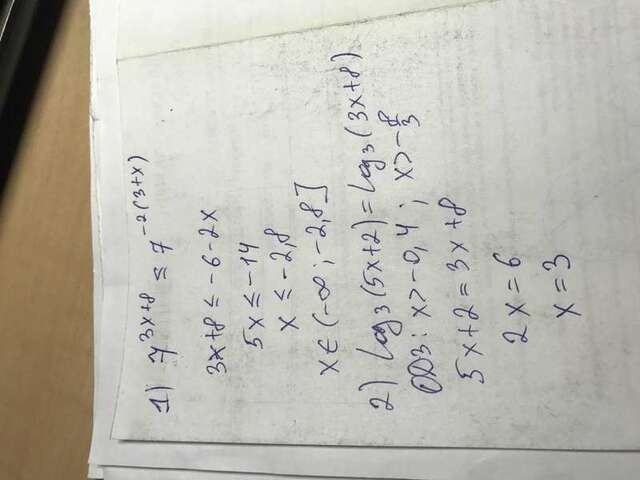 1) 7^{3x+8} ≤ 7^{-2(3+x)}
3x+8 ≤ -6-2x
5x ≤ -14
x ≤ -2,8
x ∈ (-∞ ; -2,8]
2) log₃(5x+2) = log₃(3x+8)
ОДЗ: x > -0,4 ; x > -8/3
5x+2 = 3x+8
2x = 6
x = 3